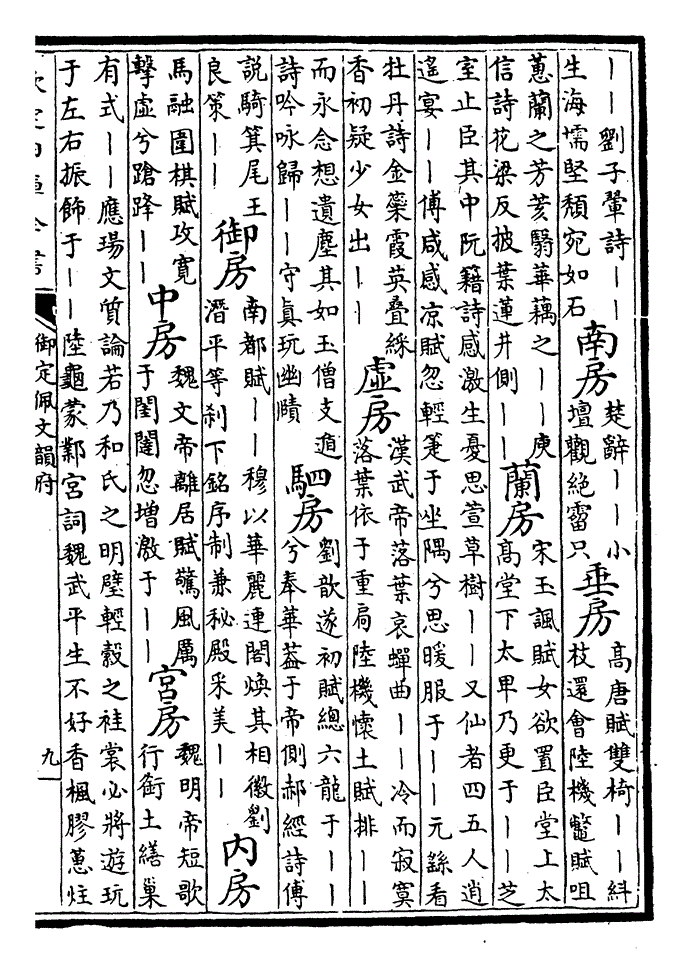 丨丨劉子翬詩丨丨
生海壖堅頽宛如石
南房
楚辭丨丨小
壇觀絶霤只
垂房
高唐賦雙椅丨丨糾
枝還會陸機鼈賦咀
蕙蘭之芳荄翳華藕之丨丨庾
信詩花梁反披葉蓮井側丨丨
蘭房
宋玉諷賦女欲置臣堂上太
高堂下太卑乃更于丨丨芝
室止臣其中阮籍詩感激生憂思萱草樹丨丨又仙者四五人逍
遙宴丨丨傅咸感凉賦忽輕箑于坐隅兮思暖服于丨丨元繇看
牡丹詩金蘂霞英叠綵
香初疑少女出丨丨
虚房
漢武帝落葉哀蟬曲丨丨冷而寂寞
落葉依于重扃陸機懷土賦排丨丨
而永念想遺塵其如玉僧支遁
詩吟咏歸丨丨守真玩幽賾
駟房
劉歆遂初賦總六龍于丨丨
兮奉華葢于帝側郝經詩傅
說騎箕尾王
良策丨丨
御房
南都賦丨丨穆以華麗連閣煥其相徽劉
潛平等刹下銘序制兼秘殿采美丨丨
内房
馬融圍棋賦攻寛
擊虚兮蹌踤丨丨
中房
魏文帝離居賦驚風厲
于閨闥忽增激于丨丨
宫房
魏明帝短歌
行銜土繕巢
有式丨丨應瑒文質論若乃和氏之明璧輕縠之袿裳必將遊玩
于左右振飾于丨丨陸龜蒙鄴宫詞魏武平生不好香楓膠蕙炷
欽定四庫全書
御定佩文韻府
九